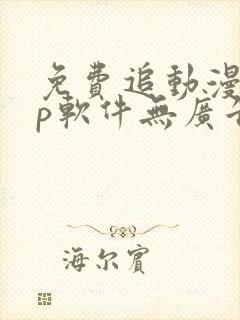 免費追動漫
p軟件無廣告
海尔賓